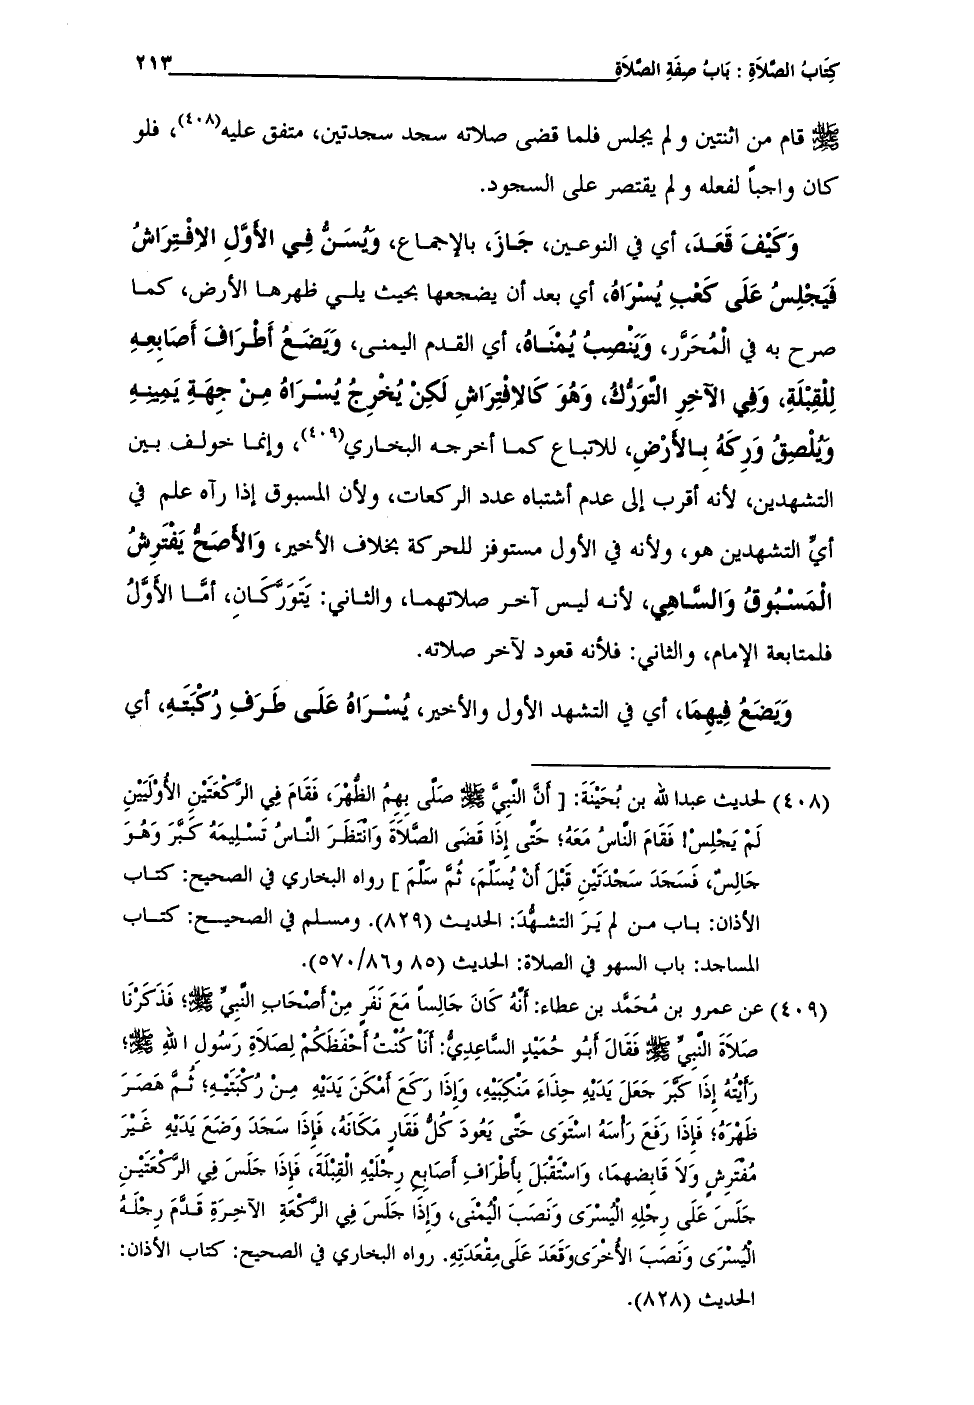 كِتَابُ الصَّلاَةِ : بَابُ صِفَةِ الصَّلاَةِ ٢١٣
ﷺ قام من اثنتين و لم يجلس فلما قضى صلاته سجد سجدتين، متفق عليه(٤٠٨)، فلو
كان واجباً لفعله و لم يقتصر على السجود.
وَكَيْفَ قَعَدَ، أي في النوعين، جَازَ، بالإجماع، وَيُسَنُّ فِي الأَوَّلِ الإِفْتِرَاشُ
فَيَجْلِسُ عَلَى كَعْبِ يُسْرَاهُ، أي بعد أن يضجعها بحيث يلي ظهرها الأرض، كما
صرح به في الْمُحَرَّر، وَيَنْصِبُ يُمْنَاهُ، أي القدم اليمنى، وَيَضَعُ أَطْرَافَ أَصَابِعِهِ
لِلْقِبْلَةِ، وَفِي الآخِرِ التَّوَرُّكُ، وَهُوَ كَالإِفْتِرَاشِ لَكِنْ يُخْرِجُ يُسْرَاهُ مِنْ جِهَةِ يَمِينِهِ
وَيُلْصِقُ وَرِكَهُ بِالأَرْضِ، للاتباع كما أخرجه البخاري(٤٠٩)، وإنما خولف بين
التشهدين، لأنه أقرب إلى عدم أشتباه عدد الركعات، ولأن المسبوق إذا رآه علم في
أيِّ التشهدين هو، ولأنه في الأول مستوفز للحركة بخلاف الأخير، وَالأَصَحُّ يَفْتَرِشُ
الْمَسْبُوقُ وَالسَّاهِي، لأنه ليس آخر صلاتهما، والثاني: يَتَوَرَّكَانِ، أمَّا الأَوَّلُ
فلمتابعة الإمام، والثاني: فلأنه قعود لآخر صلاته.
وَيَضَعُ فِيهِمَا، أي في التشهد الأول والأخير، يُسْرَاهُ عَلَى طَرَفِ رُكْبَتَهِ، أي
(٤٠٨) لحديث عبدا لله بن بُحَيْنَةَ: [ أَنَّ النَّبِيَّ ﷺ صَلَّى بِهِمُ الظُّهْرَ، فَقَامَ فِي الرَّكْعَتَيْنِ الأُوْلَيَيْنِ
لَمْ يَجْلِسْ! فَقَامَ النَّاسُ مَعَهُ؛ حَتَّى إِذَا قَضَى الصَّلاَةَ وَانْتَظَرَ النَّاسُ تَسْلِيمَهُ كَبَّرَ وَهُوَ
جَالِسٌ، فَسَجَدَ سَجْدَتَيْنِ قَبْلَ أَنْ يُسَلِّمَ، ثُمَّ سَلَّمَ ] رواه البخاري في الصحيح: كتاب
الأذان: باب من لم يَرَ التشهُّدَ: الحديث (٨٢٩). ومسلم في الصحيح: كتاب
المساجد: باب السهو في الصلاة: الحديث (٨٥ و٥٧٠/٨٦).
(٤٠٩) عن عمرو بن مُحَمَّد بن عطاء: أَنَّهُ كَانَ جَالِساً مَعَ نَفَرٍ مِنْ أَصْحَابِ النَّبِيِّ ﷺ؛ فَذَكَرْنَا
صَلاَةَ النَّبِيِّ ﷺ فَقَالَ أَبُو حُمَيْدٍ السَّاعِدِيُّ: أَنَا كُنْتُ أَحْفَظَكُمْ لِصَلاَةِ رَسُولِ اللهِ ﷺ؛
رَأَيْتُهُ إِذَا كَبَّرَ جَعَلَ يَدَيْهِ حِذَاءَ مَنْكِبَيْهِ، وَإِذَا رَكَعَ أَمْكَنَ يَدَيْهِ مِنْ رُكْبَتَيْهِ؛ ثُمَّ هَصَرَ
ظَهْرَهُ؛ فَإِذَا رَفَعَ رَأْسَهُ اسْتَوَى حَتَّى يَعُودَ كُلُّ فَقَارٍ مَكَانَهُ، فَإِذَا سَجَدَ وَضَعَ يَدَيْهِ غَيْرَ
مُفْتَرِشٍ وَلاَ قَابِضِهِمَا، وَاسْتَقْبَلَ بِأَطْرَافِ أَصَابِعِ رِجْلَيْهِ الْقِبْلَةَ، فَإِذَا جَلَسَ فِي الرَّكْعَتَيْنِ
جَلَسَ عَلَى رِجْلِهِ الْيُسْرَى وَنَصَبَ الْيُمْنَى، وَإِذَا جَلَسَ فِي الرَّكْعَةِ الآخِرَةِ قَدَّمَ رِجْلَهُ
الْيُسْرَى وَنَصَبَ الأُخْرَى وَقَعَدَ عَلَى مِقْعَدَتِهِ. رواه البخاري في الصحيح: كتاب الأذان:
الحديث (٨٢٨).